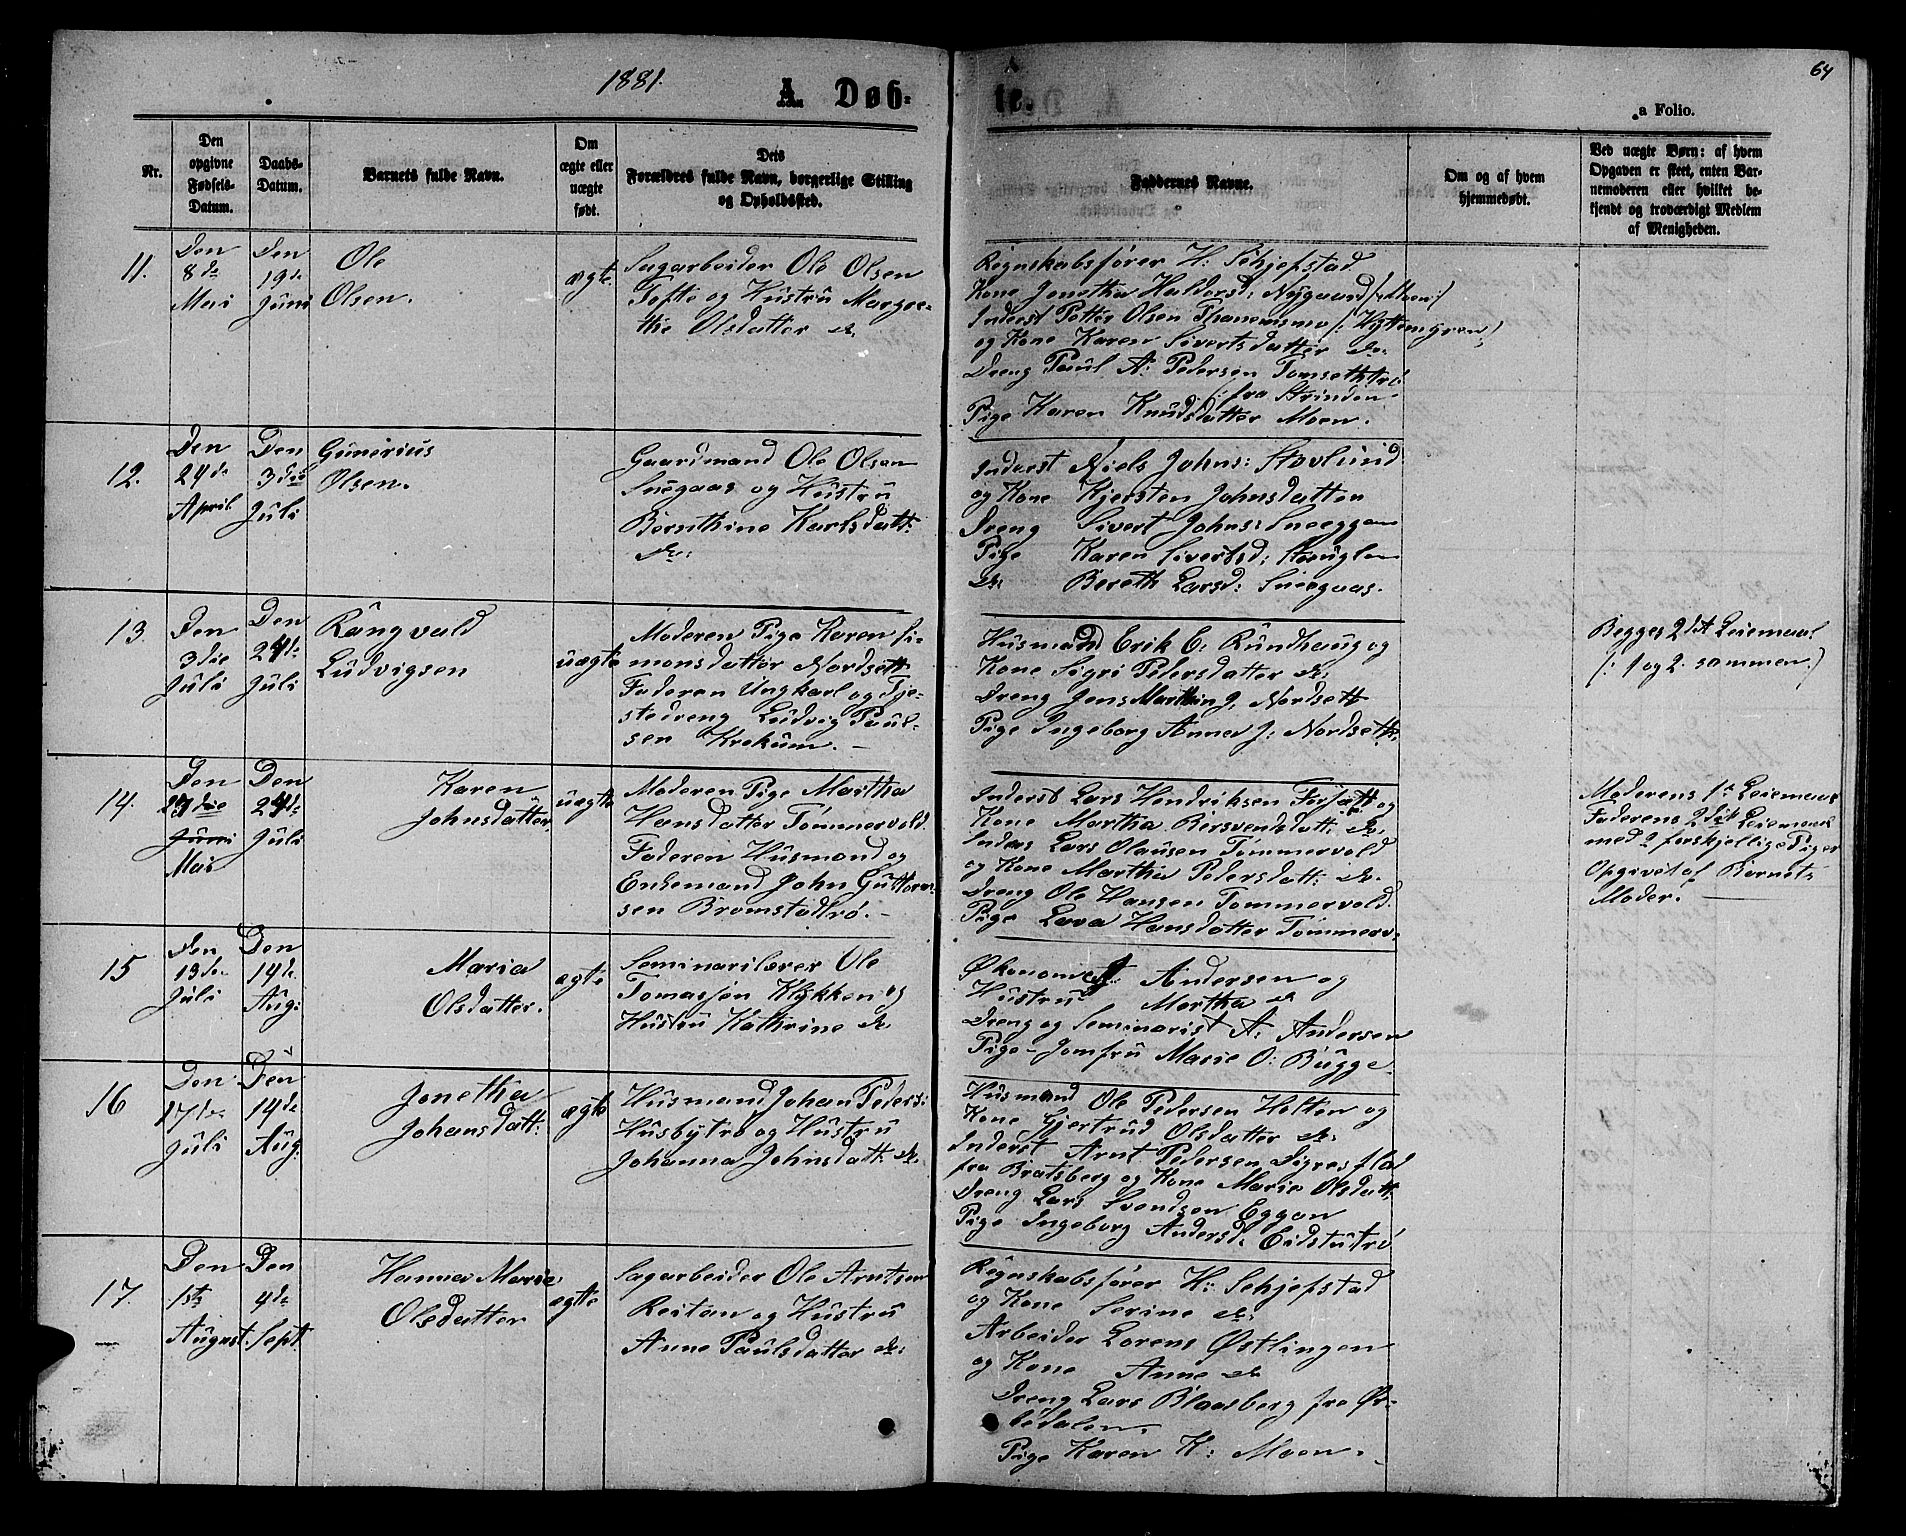 1881.
A. Døb-
te.
64
a Folio.
Nr.
Den
opgivne
Fødsels-
Datum.
Daabs-
Datum.
Barnets fulde Navn.
Om
ægte eller
uægte
født.
Dets
Forældres fulde Navn, borgerlige Stilling
og Opholdssted.
Faddernes Navne.
Om og af hvem
hjemmedøbt.
Ved uægte Børn: af hvem
Opgaven er skeet, enten Bar-
nemoderen eller hvilket be-
kjendt og troværdigt Medlem
af Menigheden.
11.
Den
8de
Mai
Den
19de
Juni
Ole
Olsen.
ægte
Sagarbeider Ole Olsen
Tofte og Hustru Margre-
the Olsdatter do
Regnskabsfører H: Schjefstad
Kone Jonetha Haldorsd: Nygaard
Inderst Petter Olsen Thanemsmo (: Hyttemyren:)
og Kone Karen Sivertsdatter do.
Dreng Paul A: Pedersen Tomsethtrø
(: fra Strinden
Pige Karen Knudsdatter Moen.
12.
Den
24de
April
Den
3die
Juli
Gunerius
Olsen.
Gaardmand Ole Olsen
Snegaas og Hustru
Bernthine Karlsdatt:
do:
Inderst Niels Johns: Stovlund
og Kone Kjersten Johnsdatter
Dreng Sivert Johns: Sneeggen
Pige Karen Sivertsd: Struglen
do: Bereth Larsd: Sneegaas.
13.
Den
3die
Juli
Den
24de
Juli
Rangvald
Ludvigsen
uægte
Moderen Pige Karen Si-
monsdatter Nordsett
Faderen Ungkarl og Tje-
stedreng Ludvig Paul-
sen Krokum. –
Husmand Erik E: Rundhaug og
Kone Sigri Pedersdatter do:
Dreng Jens Marthin J. Nordsett
Pige Ingeborg Anna J: Nordsett.
Begges 2det Leiermaal
(: 1 og 2. sammen.)
14.
Den
Juni
Mai
Den
24de
Juli
Karen
Johnsdatter,
uægte
Moderen Pige Martha
Hansdatter Tømmervold.
Faderen Husmand og
Enkemand John Guttorm-
sen Bromstadtrø. –
Inderst Lars Hendriksen Forsæth og
Kone Martha Bersvendsdatt: do:
Inders Lars Olausen Tømmervold
og Kone Martha Pedersdatt: do.
Dreng Ole Hansen Tømmervold.
Pige Lava Hansdatter Tømmerv:
Moderens 1te Leiermaal
Faderens 2det Leiermaal
med 2 forskjellige Piger
Opgivet af Barnets
Moder.
15
Den
13de
Juli
Den
14de
Aug:
Maria
Olsdatter.
ægte
Seminarilærer Ole
Tomassen Klykken og
Hustru Kathrine do.
Økonom J. Andersen og
Hustru Martha do
Dreng og Seminarist A: Andersen
Pige - Jomfru Marie O: Bugge
16
Den
17de
Juli
Den
14de
Aug.
Jonetha
Johansdatt:
ægte
Husmand Johan Peders:
Husbytrø og Hustru
Johanna Johnsdatt: do.
Husmand Ole Pedersen Holten og
Kone Gjertrud Olsdatter do:
Inderst Arnt Pedersen Digresflad
fra Bratsberg og Kone Marie Olsdatt:
Dreng Lars Svendsen Eggan
Pige Ingeborg Andersd: Eidstutrø
17.
Den
1ste
August.
Den
4de
Sept.
Hanna Marie
Olsdatter
ægte
Sagarbeider Ole Arntsen
Reitan og Hustru
Anne Paulsdatter do:
Regnskabsfører H: Schjefstad
og Kone Serine do:
Arbeider Lorens Østlingen
og Kone Anne do
Dreng Lars Blaasberg fra Ør-
kedalen.
Pige Karen K: Moen.